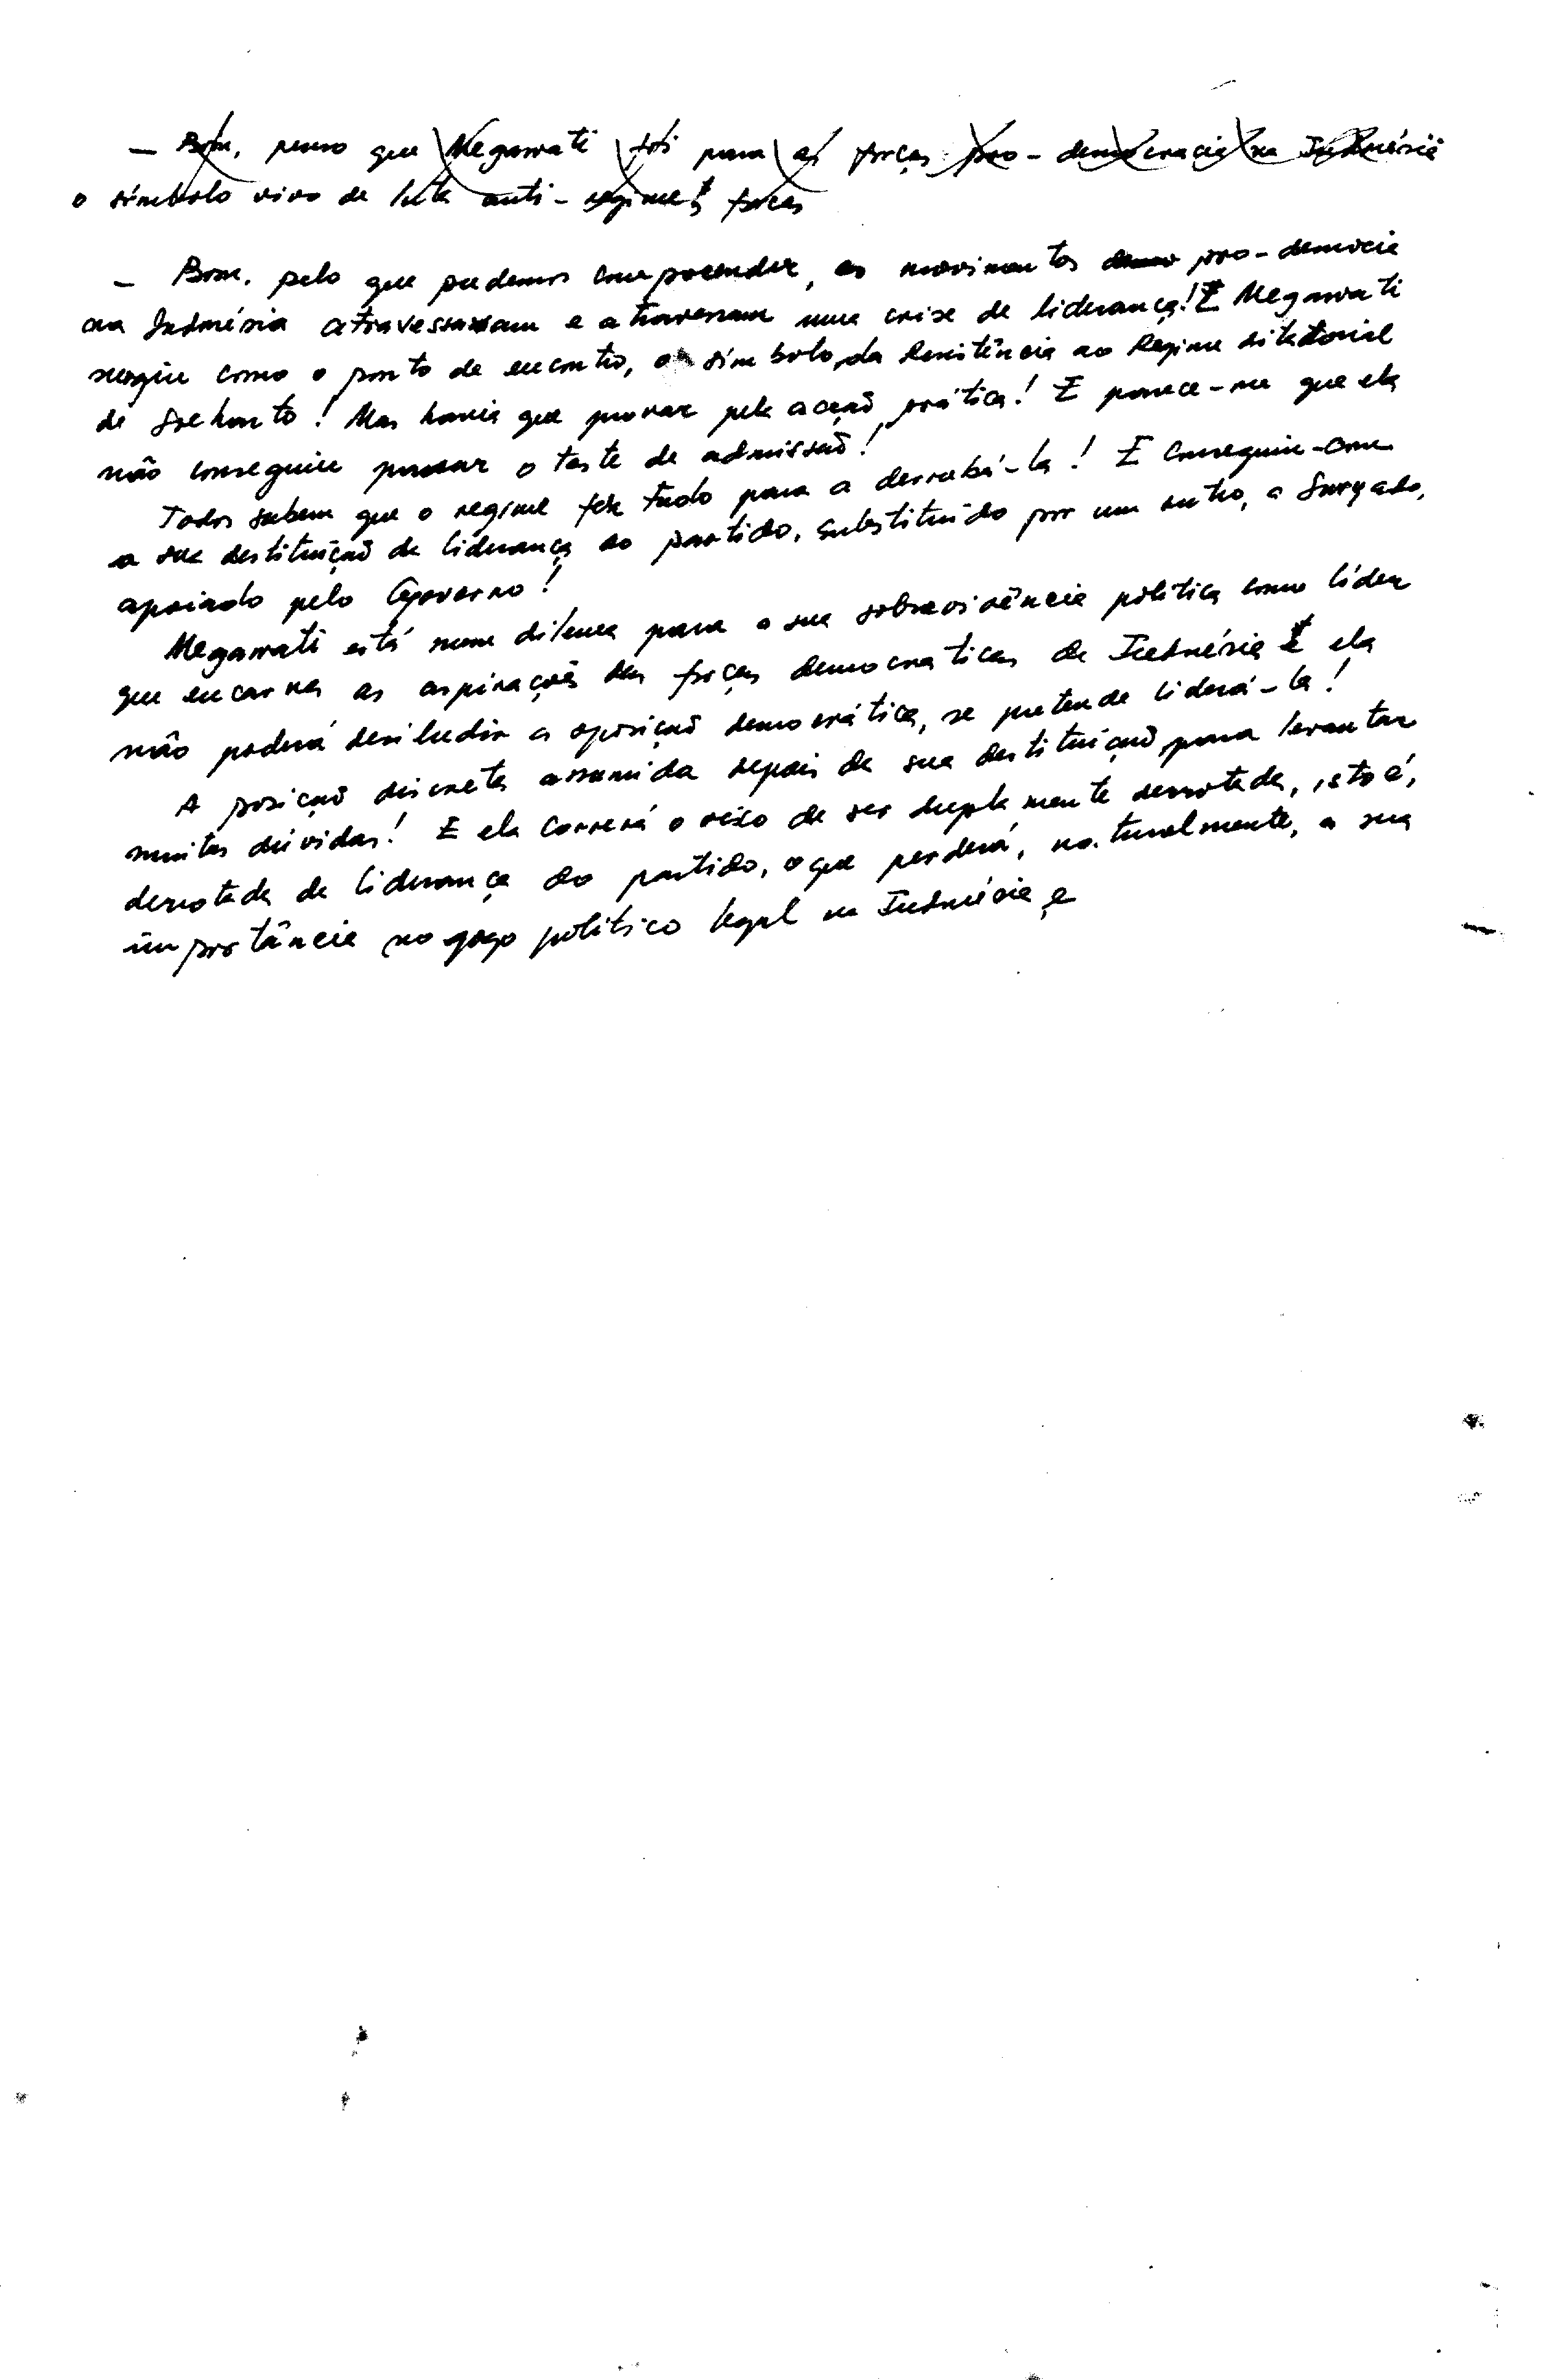 — Bom, penso que Megawati foi para as forças pro-democracia na Indonésia
o símbolo vivo de luta anti-regime forças
— Bom, pelo que pudemos compreender, os movimentos pro-democia
na Indonésia atravessaram e atravessam uma crise de liderança! E Megawati
surgiu como o ponto de encontro, o símbolo da Resistência ao Regime ditatorial
de Soeharto! Mas havia que provar pela acção prática! E parece-me que ela
não conseguiu passar o teste de admissão!
Todos sabem que o regime fez tudo para a derrubá-la! E conseguiu-com
a sua destituição da liderança do partido, substituído por um outro, o Suryado,
apoiado pelo Governo!
Megawati está num dilema para a sua sobrevivência política como líder
que encarna as aspirações das forças democraticas da Indonésia E ela
não poderá desiludir a oposição democrática, se pretende liderá-la!
A posição discreta assumida depois da sua destituição, para levantar
muitas dúvidas! E ela correrá o risco de ser duplamente derrotada, isto é,
derrotada da liderança do partido, o que perderá, naturalmente, a sua
importância no gogo político legal na Indonésia e